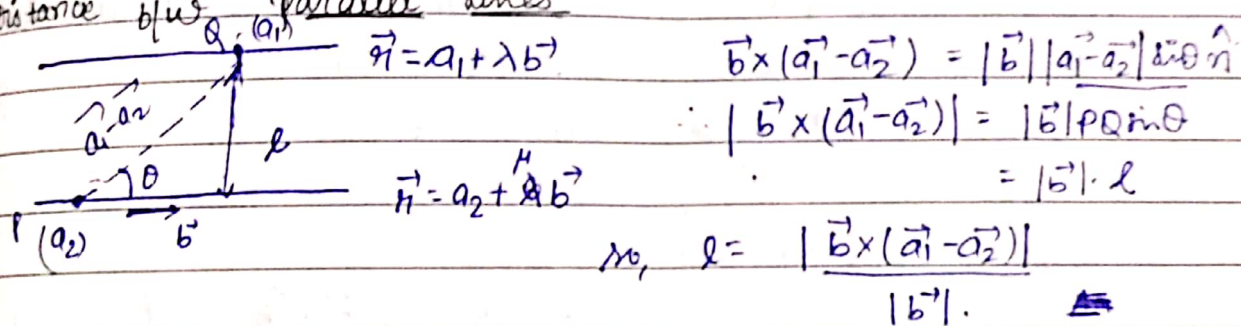 distance b/w parallel lines
Q (a₁)
r⃗ = a₁ + λb⃗
a₁ - a₂
l
θ
P (a₂) b⃗
r⃗ = a₂ + μb⃗
b⃗×(a₁⃗-a₂⃗) = |b⃗||a₁⃗-a₂⃗|sinθ n̂
∴ |b⃗×(a₁⃗-a₂⃗)| = |b⃗|PQsinθ
= |b⃗|.l
so, l = |b⃗×(a₁⃗-a₂⃗)|
|b⃗|.